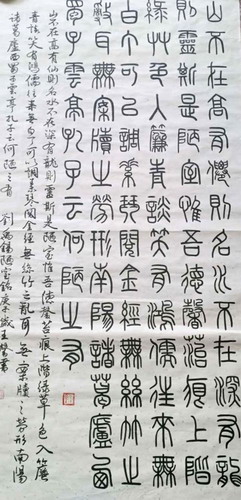 山不在高有僊則名水不在深有龍
則靈斯是陋室惟吾德馨苔痕上階
綠艸色入簾青談笑有鴻儒往來無
白丁可以調素琴閱金經無絲竹之
亂耳無案牘之勞形南陽諸葛廬西
蜀子雲亭孔子云何陋之有
山不在高有仙則名水不在深有龍則靈斯是陋室惟吾德馨苔痕上階綠草色入簾
青談笑有鴻儒往來無白丁可以調素琴閱金經無絲竹之亂耳無案牘之勞形南陽
諸葛廬西蜀子雲亭孔子云何陋之有 劉禹錫陋室銘